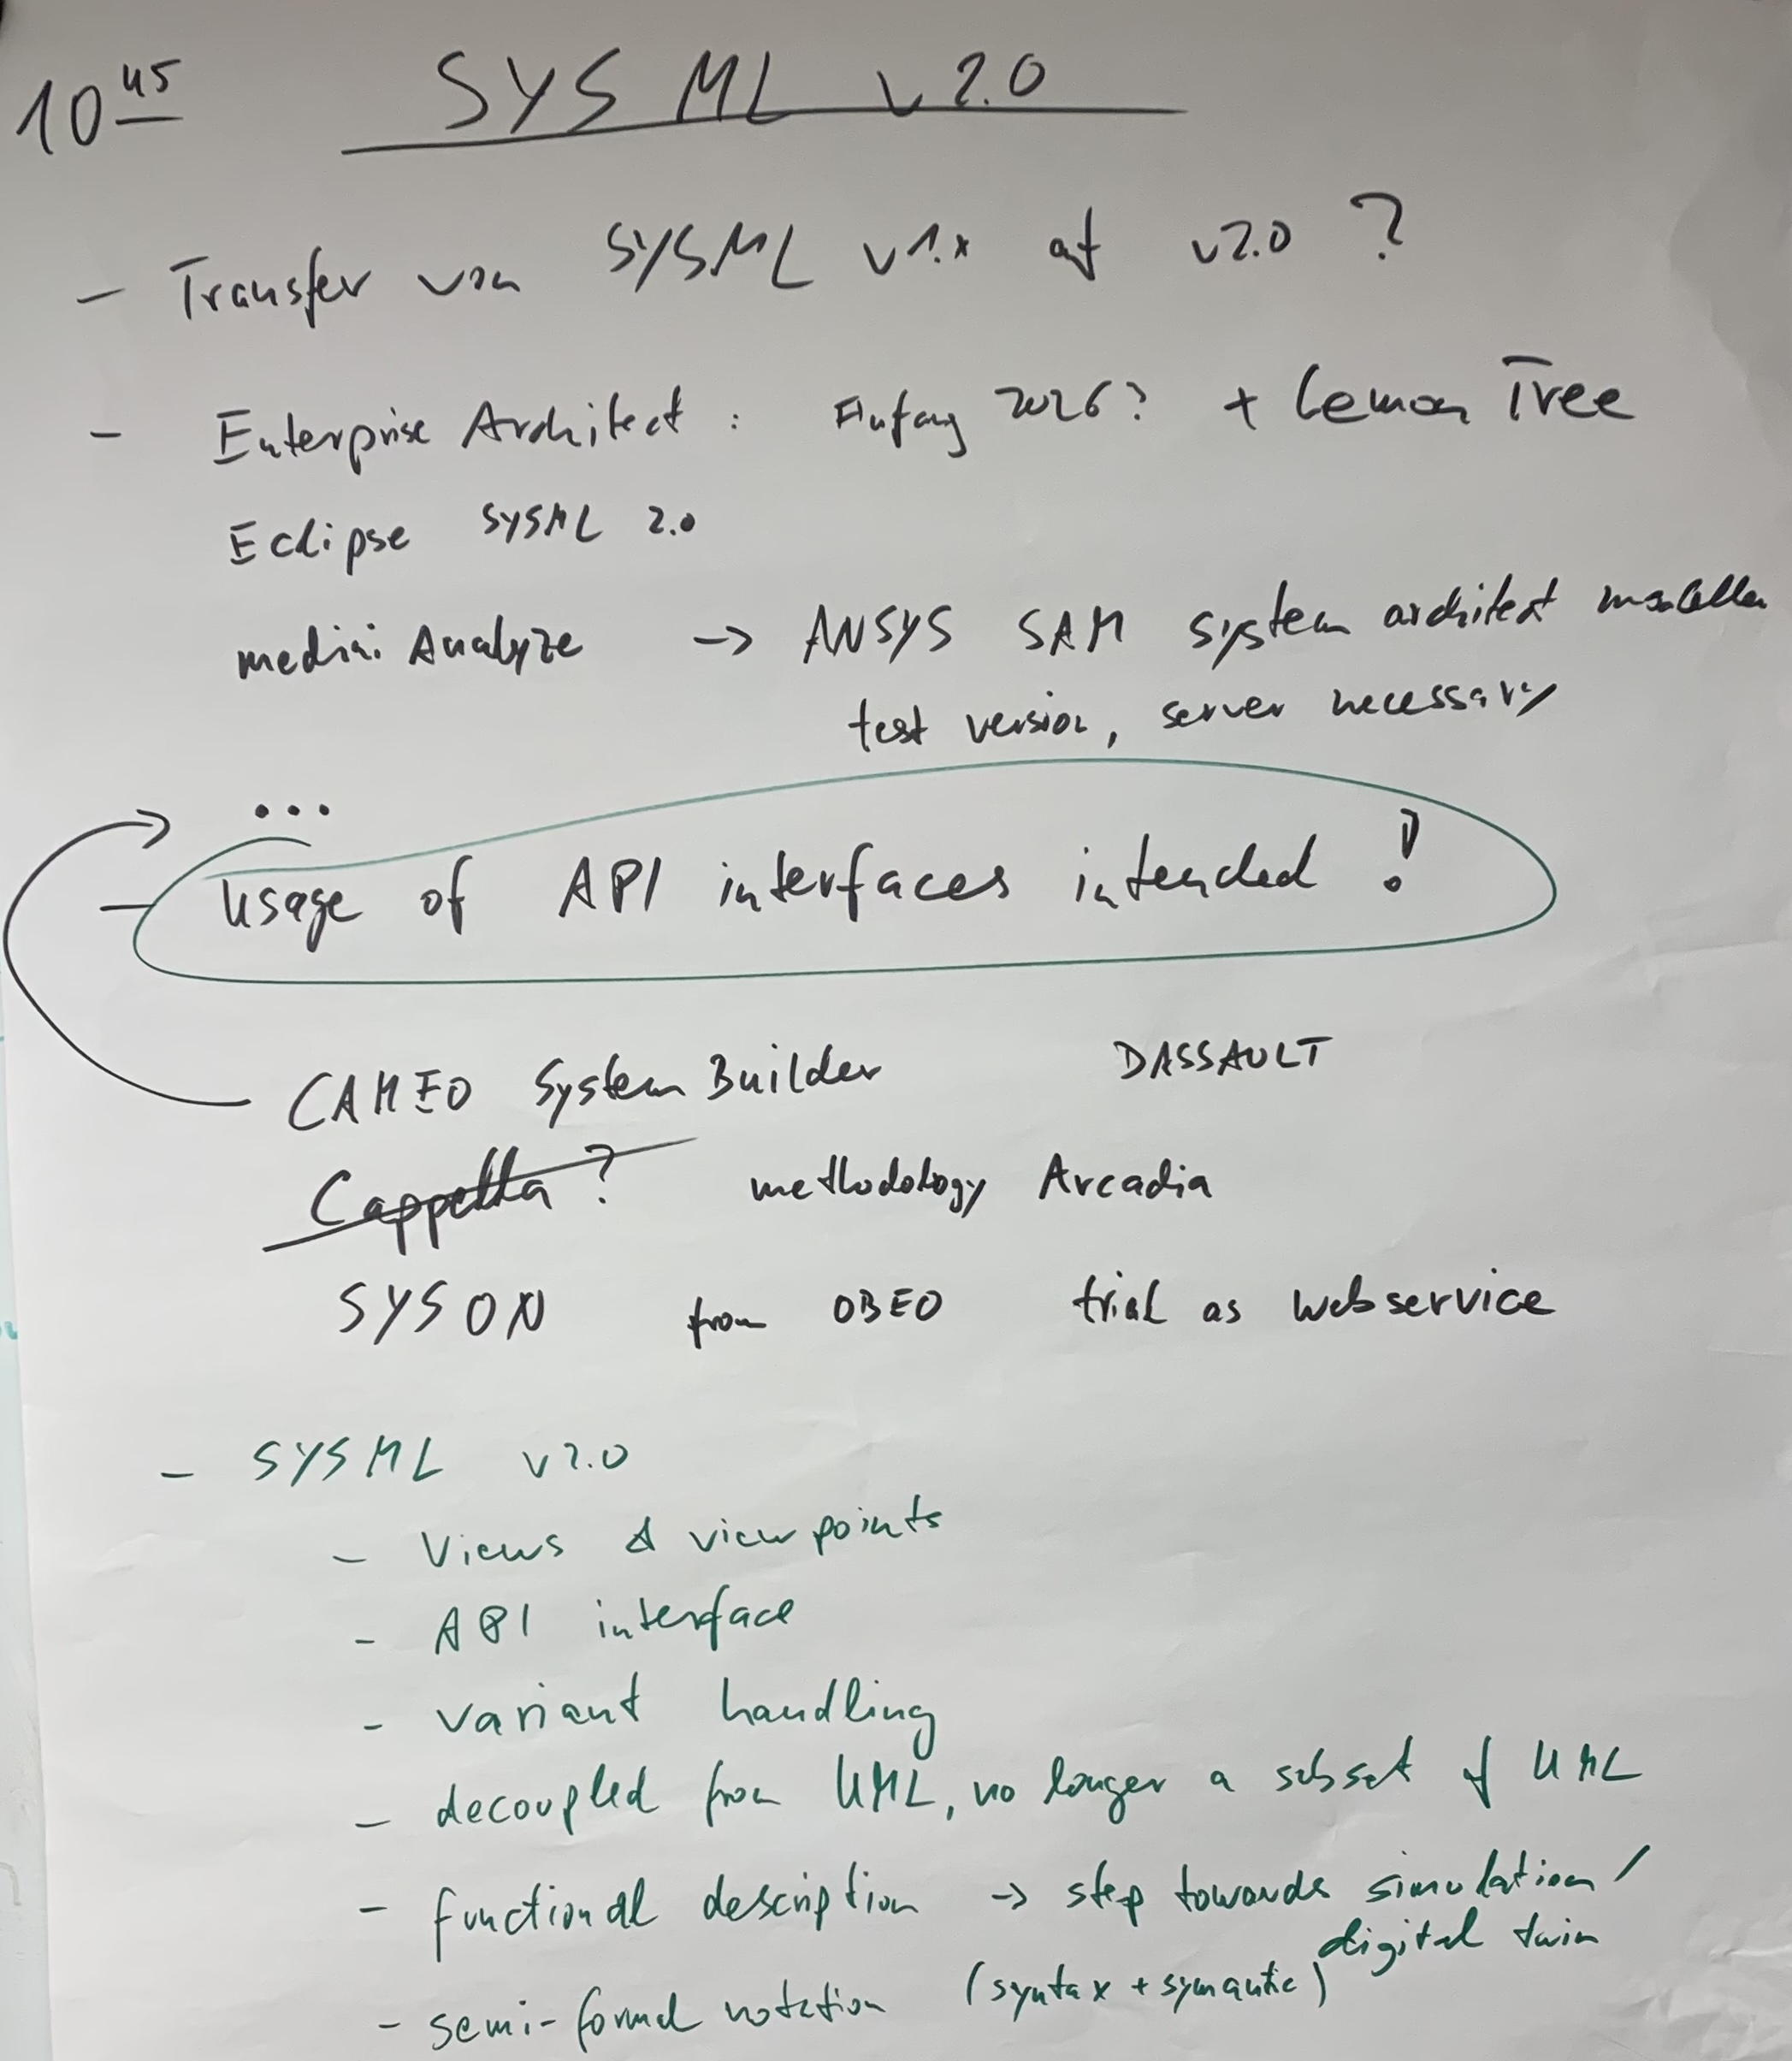 10 45 SYS ML v 2.0
- Transfer von SYSML v1.x af v2.0 ?
- Enterprise Architect : Anfang 2026? + Lemon Tree
Eclipse SYSML 2.0
medini Analyze -> ANSYS SAM system architect modeller
test version, server necessary
...
- usage of API interfaces intended !
CAMEO System Builder DASSAULT
Cappella ? methodology Arcadia
SYSON from OBEO trial as webservice
- SYSML v2.0
- Views & viewpoints
- API interface
- variant handling
- decoupled from UML, no longer a subset of UML
- functional description -> step towards simulation /
digital twin
- semi-formal notation (syntax + symantic)